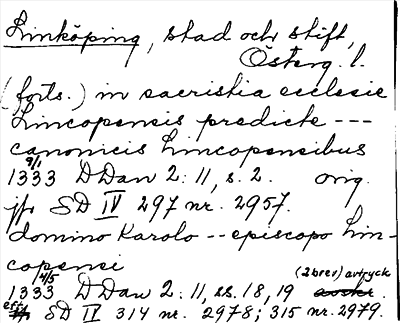 Linköping, stad och stift,
Österg. l.
(forts.) in sacristia ecclesie
Lincopensis predicte ---
canonicis Lincopensibus
9/1
1333 DDan 2:11, s. 2. orig.
jfr SD IV 297 nr. 2957.
domino Karolo -- episcopo Lin-
copensi
4/5 (2 brev) avtryck
1333 DDan 2:11, ss. 18, 19 avskr.
eft. SD IV 314 nr. 2978; 315 nr. 2979.